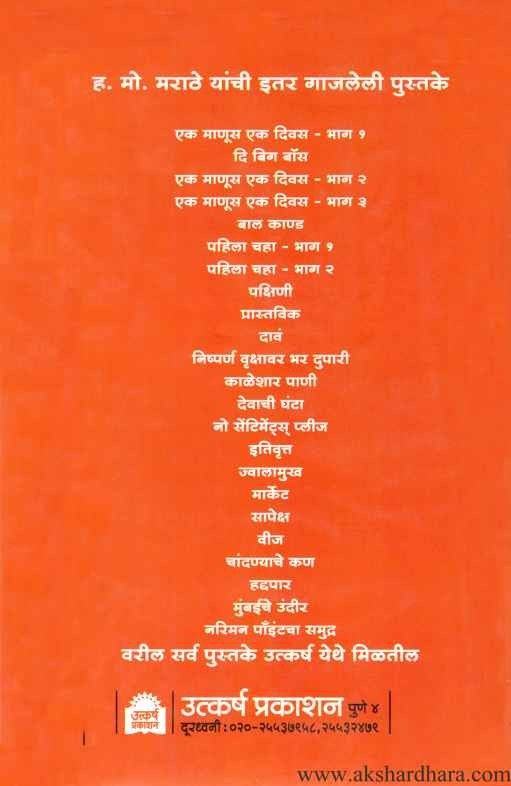 ह. मो. मराठे यांची इतर गाजलेली पुस्तके
एक माणूस एक दिवस - भाग १
दि बिग बॉस
एक माणूस एक दिवस - भाग २
एक माणूस एक दिवस - भाग ३
बाल काण्ड
पहिला चहा - भाग १
पहिला चहा - भाग २
पक्षिणी
प्रास्तविक
दावं
निष्पर्ण वृक्षावर भर दुपारी
काळेशार पाणी
देवाची घंटा
नो सेंटिमेंट्स् प्लीज
इतिवृत्त
ज्वालामुख
मार्केट
सापेक्ष
वीज
चांदण्याचे कण
हद्दपार
मुंबईचे उंदीर
नरिमन पॉइंटचा समुद्र
वरील सर्व पुस्तके उत्कर्ष येथे मिळतील
उत्कर्ष प्रकाशन
उत्कर्ष प्रकाशन पुणे ४
दूरध्वनी : ०२०-२५५३७९५८, २५५३२४७९
www.akshardhara.com